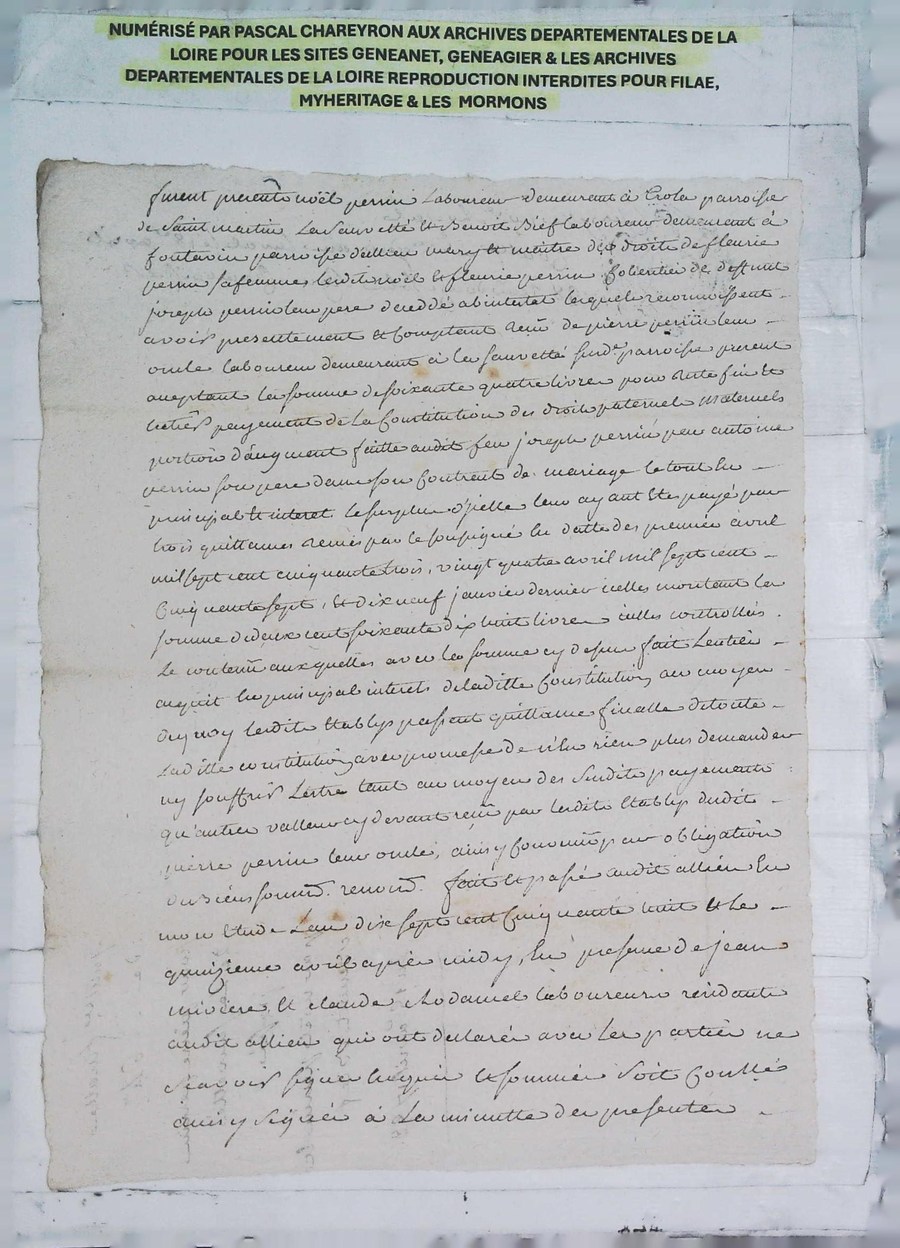 NUMÉRISÉ PAR PASCAL CHAREYRON AUX ARCHIVES DEPARTEMENTALES DE LA
LOIRE POUR LES SITES GENEANET, GENEAGIER & LES ARCHIVES
DEPARTEMENTALES DE LA LOIRE REPRODUCTION INTERDITES POUR FILAE,
MYHERITAGE & LES MORMONS
furent presents noël perrin Laboureur demeurant à parroisse
de Saint martin La sauveté Et Benoit Bief laboureur demeurant à
parroisse dallieu mary et maitre des droits de fleurie
perrin sa femme lesdits noël Et fleurie perrin de deffunt
joseph perrin leur pere decedé abintestat lesquels reconnoissent
avoir presentement Et Comptant reçû de pierre perrin leur
oncle laboureur demeurant à la sauveté susde parroisse present
acceptant la somme de soixante quatre livres pour reste fin Et
payement de La Constitution des droits paternels maternels
portion d'augment faitte audit feu joseph perrin par antoine
perrin son pere dans son Contract de mariage le tout En
principal Et interet Le surplus d'icelle leur ayant Eté payé par
trois quittances par le soussigné En datte des premier avril
mil sept cent cinquante trois, vingt quatre avril mil sept cent
Cinquante sept, Et dix neuf janvier dernier icelles montant La
somme de deux cent soixante dix huit livres icelles controllées
Le contenu auxquelles avec la somme cy dessus fait L'entier
acquit En principal interets de laditte Constitution au moyen
dequoy lesdits Etablys passent quittance finalle de toute
Laditte constitution avec promesse de n'En rien plus demander
ny souffrir L'estre tant au moyen des Susdits payements
qu'autres valleurs cy devant reçu par lesdits Etablys dudit
pierre perrin leur oncle, ainsy Convenu par obligation
de biens soumis. renon. fait Et passé audit allieu En
mon Etude L'an dix sept cent Cinquante huit Et Le
quinzieme avril après midy, En presence de jean
Et claude Chodamel laboureurs residants
audit allieu qui ont declaré avec Les parties ne
Scavoir signer Enquis Et sommés Soit Conllé
ainsy Signée à La minutte des presentes